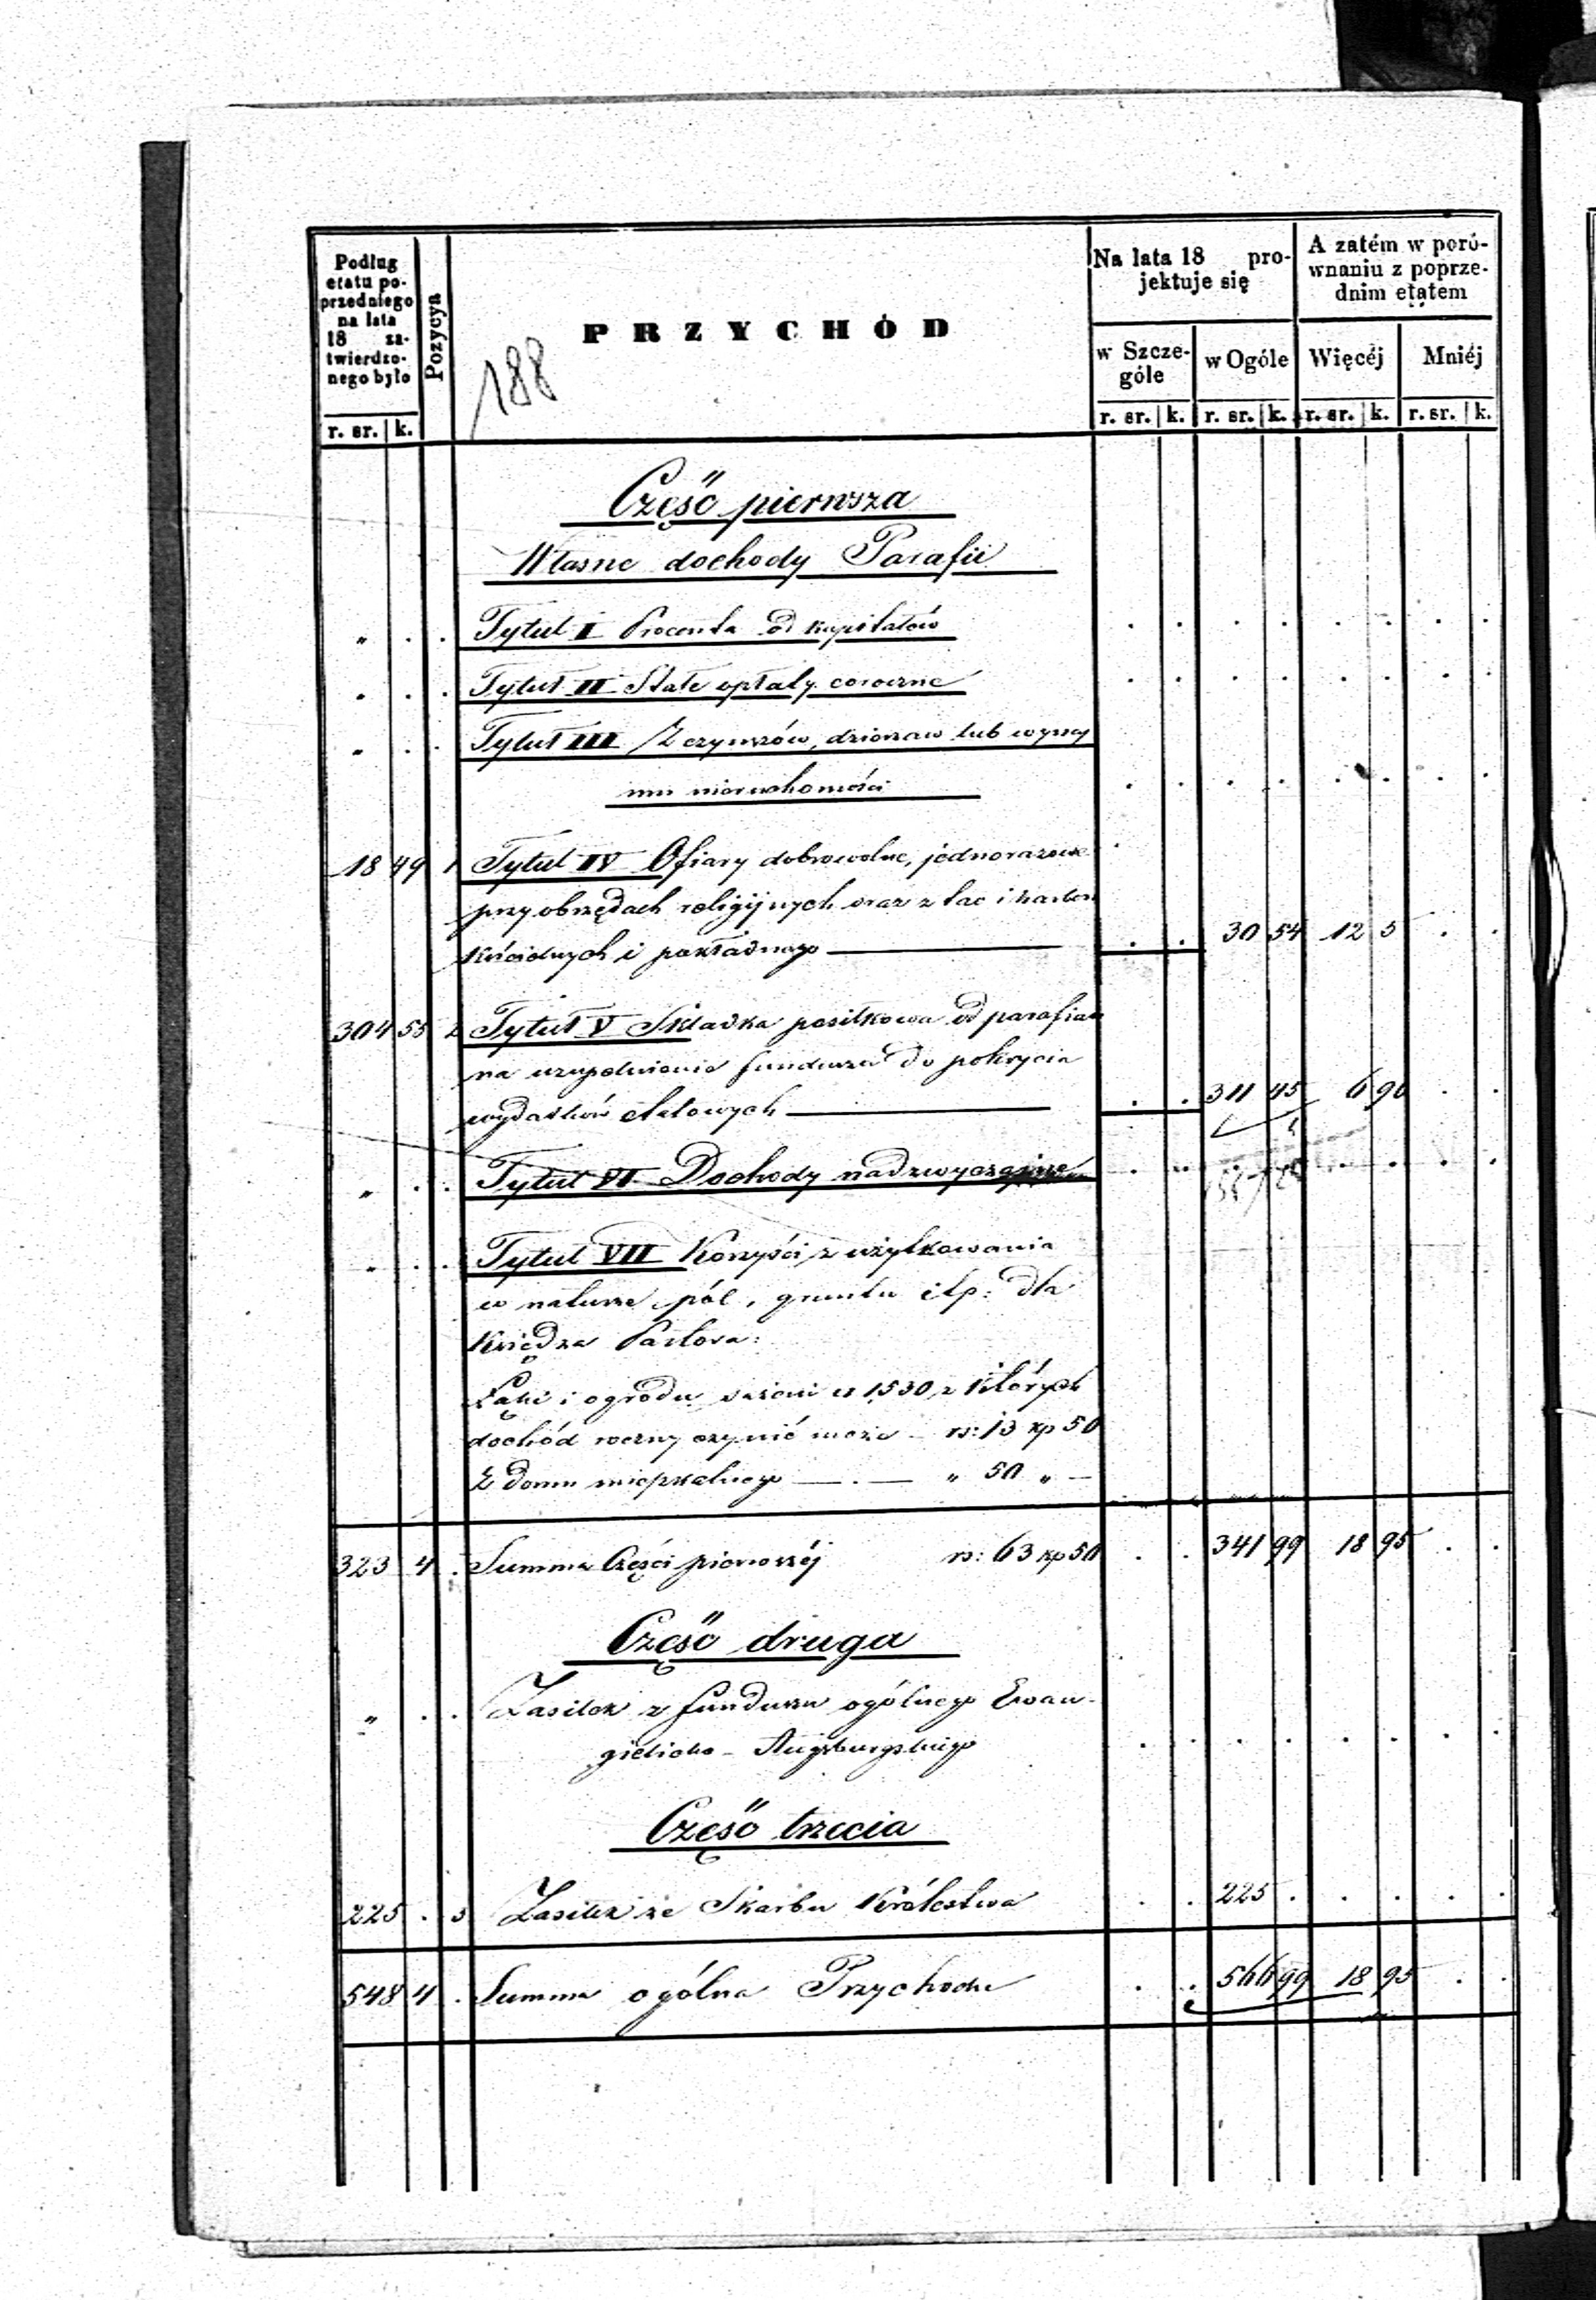 Podług
etatu po-
przedniego
na lata
18 za-
twierdzo-
nego było
r. sr. k.
Pozycya
PRZYCHÓD
188
Na lata 18 pro-
jektuje się
w Szcze-
góle
r. sr. k.
w Ogóle
r. sr. k.
A zatém w poró-
wnaniu z poprze-
dnim etatem
Więcéj
r. sr. k.
Mniéj
r. sr. k.
Część pierwsza
Własne dochody Parafii
" . . Tytuł I Procenta od kapitałów . . . . . . . .
. . . Tytuł II Stałe opłaty coroczne . . . . . . . .
" . . Tytuł III Z czynszów, dzierżaw lub wynaj
mu nieruchomości . . . . . . . .
18 49 1 Tytuł IV Ofiary dobrowolne, jednorazowe
przy obrzędach religijnych oraz z tac i
kościelnych i pokładnego — . . 30 54 12 5 . .
304 55 2 Tytuł V Składka posiłkowa od parafian
na uzupełnienie funduszu do pokrycia
wydatków etatowych — . . 311 45 6 90 . .
" . . Tytuł VI Dochody nadzwyczajne . . . . . . . .
" . . Tytuł VII Korzyści z użytkowania
w naturze pól, gruntu itp: dla
Księdza Pastora:
Łąki i ogrodu sążeni 1530, z których
dochód roczny czynić może – rs: 13 kp 50
Z domu mieszkalnego — . — " 50 " —
323 4 . Summa Części pierwszéj rs: 63 kp 50 . . 341 99 18 95 . .
Część druga
" . . Zasiłek z funduszu ogólnego Ewan-
gielicko - Augsburgskiego . . . . . . . .
Część trzecia
225 . 3 Zasiłek ze Skarbu Królestwa . . 225 . . . . .
548 4 . Summa ogólna Przychodu . . 566 99 18 95 . .